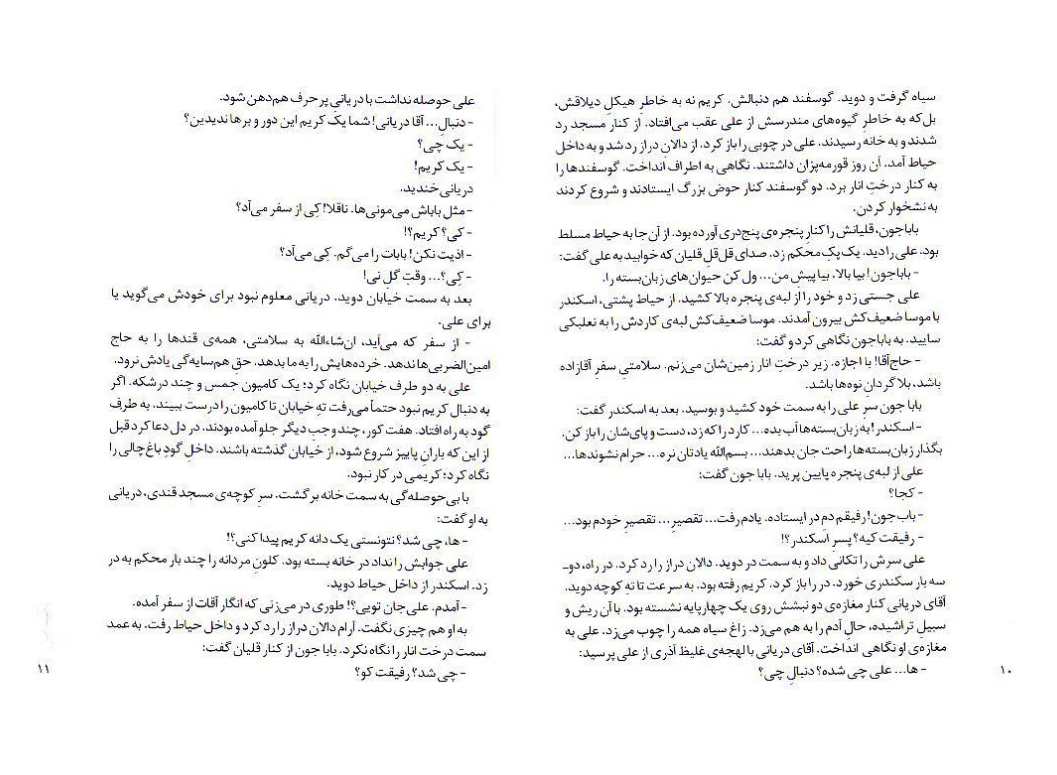 سیاه گرفت و دوید. گوسفند هم دنبالش. کریم نه به خاطرِ هیکلِ دیلاقش،
بل‌که به خاطرِ گیوه‌های مندرسش از علی عقب می‌افتاد. از کنار مسجد رد
شدند و به خانه رسیدند. علی در چوبی را باز کرد. از دالان دراز رد شد و به داخل
حیاط آمد. آن روز قورمه‌پزان داشتند. نگاهی به اطراف انداخت. گوسفندها را
به کنار درختِ انار برد. دو گوسفند کنار حوض بزرگ ایستادند و شروع کردند
به نشخوار کردن.
باباجون، قلیانش را کنارِ پنجره‌ی پنج‌دری آورده بود. از آن‌جا به حیاط مسلط
بود. علی را دید. یک پکِ محکم زد. صدای قل‌قلِ قلیان که خوابید به علی گفت:
- باباجون! بیا بالا، بیا پیشِ من... ول کن حیوان‌های زبان‌بسته را.
علی جستی زد و خود را از لبه‌ی پنجره بالا کشید. از حیاط پشتی، اسکندر
با موسا ضعیف‌کش بیرون آمدند. موسا ضعیف‌کش لبه‌ی کاردش را به نعلبکی
سایید. به باباجون نگاهی کرد و گفت:
- حاج‌آقا! با اجازه. زیر درختِ انار زمین‌شان می‌زنم. سلامتیِ سفرِ آقازاده
باشد، بلاگردانِ نوه‌ها باشد.
بابا جون سرِ علی را به سمت خود کشید و بوسید. بعد به اسکندر گفت:
- اسکندر! به زبان‌بسته‌ها آب بده... کارد را که زد، دست و پای‌شان را باز کن.
بگذار زبان‌بسته‌ها راحت جان بدهند... بسم‌الله یادتان نره... حرام نشوندها...
علی از لبه‌ی پنجره پایین پرید. بابا جون گفت:
- کجا؟
- باب‌جون! رفیقم دمِ در ایستاده. یادم رفت... تقصیرِ... تقصیرِ خودم بود...
- رفیقت کیه؟ پسرِ اسکندر؟!
علی سرش را تکانی داد و به سمت در دوید. دالان دراز را رد کرد. در راه، دو-
سه بار سکندری خورد. در را باز کرد. کریم رفته بود. به سرعت تا تهِ کوچه دوید.
آقای دریانی کنار مغازه‌ی دو نبشش روی یک چهارپایه نشسته بود. با آن ریش و
سبیلِ تراشیده، حالِ آدم را به هم می‌زد. زاغ سیاه همه را چوب می‌زد. علی به
مغازه‌ی او نگاهی انداخت. آقای دریانی با لهجه‌ی غلیظ آذری از علی پرسید:
- ها... علی چی شده؟ دنبالِ چی؟
۱۰
علی حوصله نداشت با دریانیِ پر حرف هم‌دهن شود.
- دنبالِ... آقا دریانی! شما یک کریم این دور و برها ندیدین؟
- یک چی؟
- یک کریم!
دریانی خندید.
- مثل باباش می‌مونی‌ها. ناقلا! کِی از سفر می‌آد؟
- کی؟ کریم؟!
- اذیت نکن! بابات را می‌گم. کِی می‌آد؟
- کِی؟... وقتِ گلِ نی!
بعد به سمت خیابان دوید. دریانی معلوم نبود برای خودش می‌گوید یا
برای علی.
- از سفر که می‌آید، ان‌شاءالله به سلامتی، همه‌ی قندها را به حاج
امین‌الضربی‌ها ندهد. خرده‌هایش را به ما بدهد. حقِ هم‌سایه‌گی یادش نرود.
علی به دو طرف خیابان نگاه کرد؛ یک کامیون جمس و چند درشکه. اگر
به دنبال کریم نبود حتماً می‌رفت تهِ خیابان تا کامیون را درست ببیند. به طرف
گود به راه افتاد. هفت کور، چند وجب دیگر جلو آمده بودند. در دل دعا کرد قبل
از این که بارانِ پاییز شروع شود، از خیابان گذشته باشند. داخلِ گودِ باغ‌چالی را
نگاه کرد؛ کریمی در کار نبود.
با بی‌حوصله‌گی به سمت خانه برگشت. سرِ کوچه‌ی مسجد قندی، دریانی
به او گفت:
- ها، چی شد؟ نتونستی یک دانه کریم پیدا کنی؟!
علی جوابش را نداد. در خانه بسته بود. کلونِ مردانه را چند بار محکم به در
زد. اسکندر از داخل حیاط دوید.
- آمدم. علی‌جان تویی؟! طوری در می‌زنی که انگار آقات از سفر آمده.
به او هم چیزی نگفت. آرام دالان دراز را رد کرد و داخل حیاط رفت. به عمد
سمت درخت انار را نگاه نکرد. بابا جون از کنار قلیان گفت:
- چی شد؟ رفیقت کو؟
۱۱